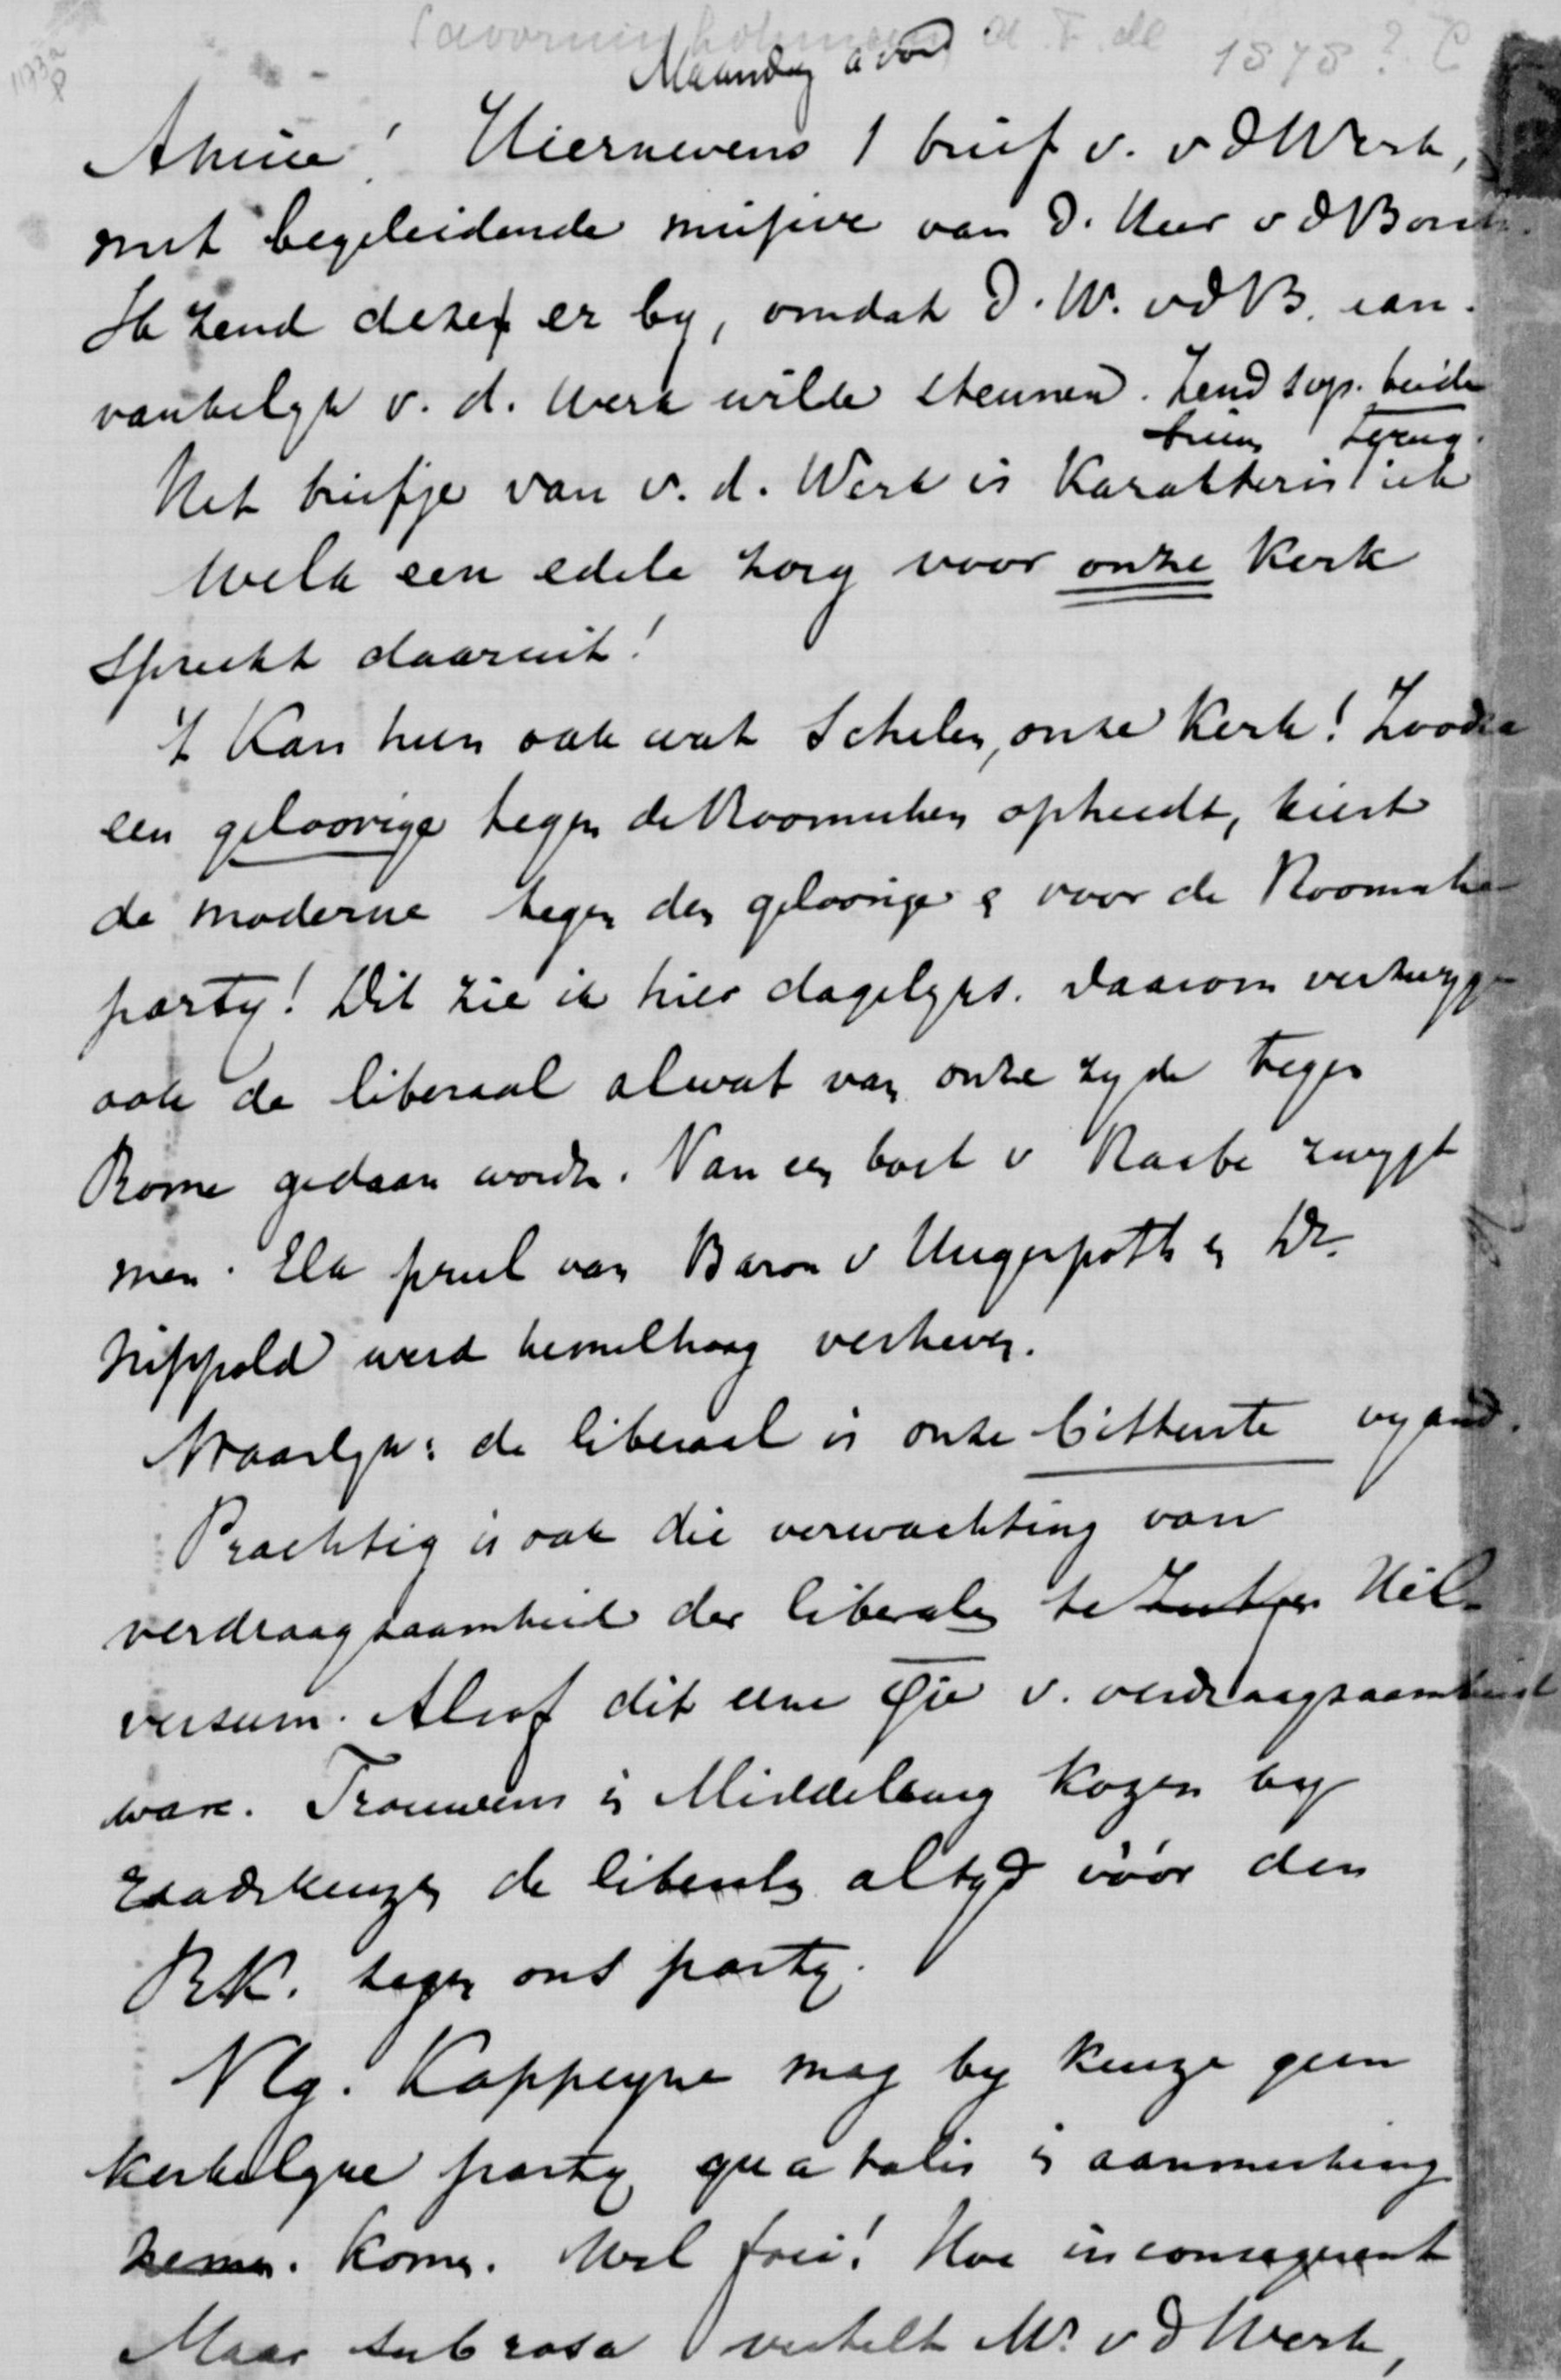 Savornin Lohman A. F. de 1878? C
Maandag avond
Amice! Hiernevens 1 brief v. v d Werk,
met begeleidende missive van d. Heer v d Borch.
Ik zend dezen er by, omdat d. W. v d B. aan-
vankelyk v. d. Werk wilde steunen. Zend svp. beide
brieven terug.
Het briefje van v. d. Werk is karakteristiek
Welk een edele zorg voor onze Kerk
spreekt daaruit!
't Kan hen ook wat schelen, onze Kerk! Zoodra
een geloovige tegen de Roomschen optreedt, kiest
de moderne tegen den geloovige & voor de Roomsche
party! Dit zie ik hier dagelyks. Daarom verzwygen
ook de liberaal alwat van onze zyde tegen
Rome gedaan wordt. Van een boek v Raabe zwygt
men. Elk prul van Baron v Ungerpoth en Dr.
Nippold werd hemelhoog verheven.
Waarlyk: de liberaal is onze bitterste vyand.
Prachtig is ook die verwachting van
verdraagzaamheid der liberalen te Zutfen Hil-
versum. Alsof dit eene qu. v. verdraagzaamheid
ware. Trouwens in Middelburg kozen by
raadskeuzen de liberalen altyd vóór den
RK. tegen ons party.
Vlg. Kappeyne mag by keuze geen
kerkelyke party qua talis in aanmerking
nemen. komen. Wel foei! Hoe inconsequent
Maar sub rosa vertelt Mr v d Werk,